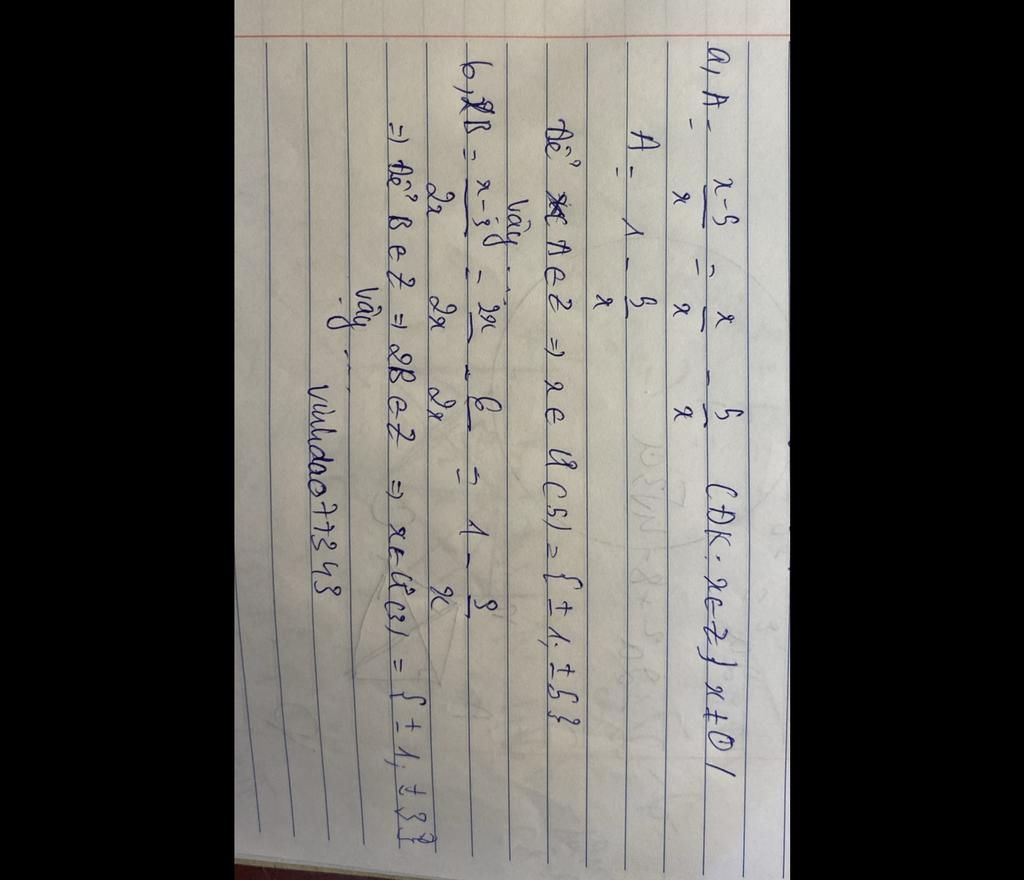 a, A = x-5/x = x/x - 5/x (ĐK: x∈Z; x≠0)
A = 1 - 5/x
Để A∈Z => x∈Ư(5) = {±1; ±5}
Vậy ...
b, 2B = x-3/2x = 2x/2x - 6/2x = 1 - 3/x
=> Để B∈Z => 2B∈Z => x∈Ư(3) = {±1; ±3}
Vậy ...
vinhdao77343